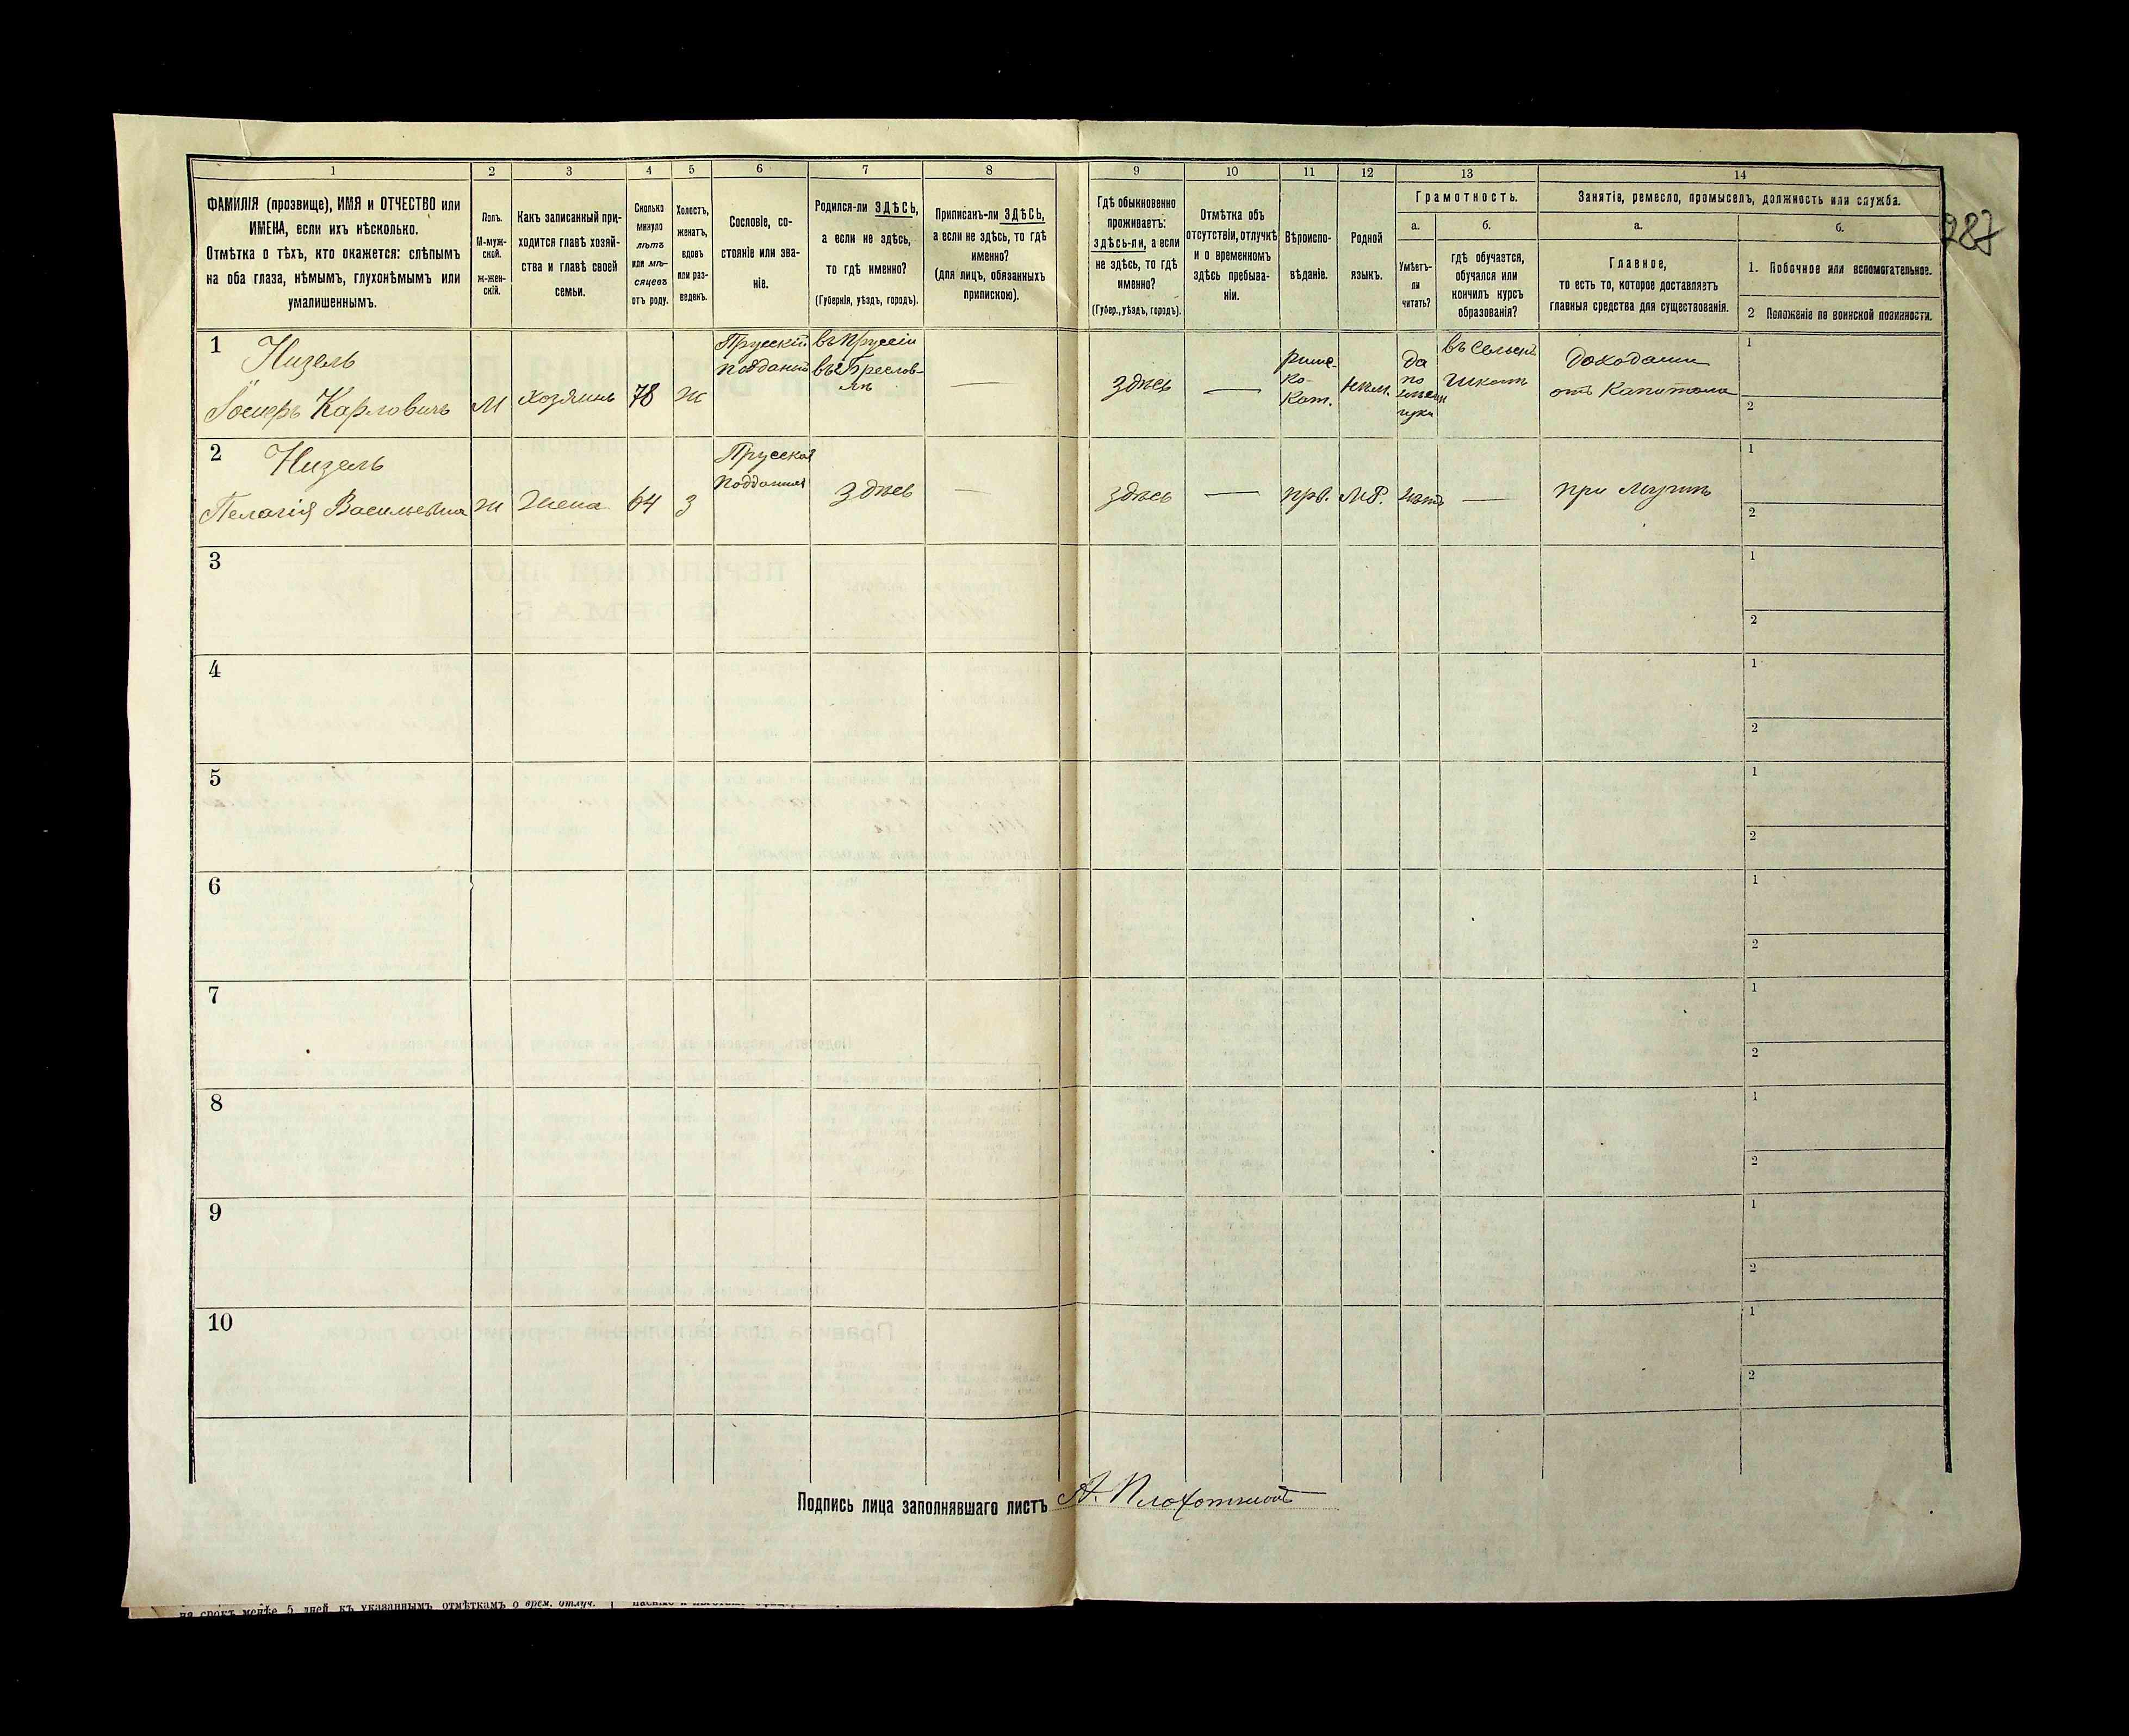 1 2 3 4 5 6 7 8 9 10 11 12 13 14
ФАМИЛІЯ (прозвище), ИМЯ и ОТЧЕСТВО или
ИМЕНА, если ихъ нѣсколько.
Отмѣтка о тѣхъ, кто окажется: слѣпымъ
на оба глаза, нѣмымъ, глухонѣмымъ или
умалишеннымъ.
Полъ.
М-муж-
ской.
ж-жен-
скій.
Какъ записанный при-
ходится главѣ хозяй-
ства и главѣ своей
семьи.
Сколько
минуло
лѣтъ
или мѣ-
сяцевъ
отъ роду.
Холостъ,
женатъ,
вдовъ
или раз-
веденъ.
Сословіе, со-
стояніе или зва-
ніе.
Родился-ли ЗДѢСЬ,
а если не здѣсь,
то гдѣ именно?
(Губернія, уѣздъ, городъ).
Приписанъ-ли ЗДѢСЬ,
а если не здѣсь, то гдѣ
именно?
(для лицъ, обязанныхъ
припискою).
Гдѣ обыкновенно
проживаетъ:
здѣсь-ли, а если
не здѣсь, то гдѣ
именно?
(Губер., уѣздъ, городъ).
Отмѣтка объ
отсутствіи, отлучкѣ
и о временномъ
здѣсь пребыва-
ніи.
Вѣроиспо-
вѣданіе.
Родной
языкъ.
Грамотность.
а.
Умѣетъ-
ли
читать?
б.
гдѣ обучается,
обучался или
кончилъ курсъ
образованія?
Занятіе, ремесло, промыселъ, должность или служба.
а.
Главное,
то есть то, которое доставляетъ
главныя средства для существованія.
б.
1. Побочное или вспомогательное.
2 Положеніе по воинской повинности.
287
1 Низель
Іосифъ Карловичъ
М
хозяинъ
78
ж
Прусскій
подданый
въ Пруссіи
въ г Бреслов-
лѣ
—
здѣсь
—
римс-
ко-
кат.
нѣм.
да
по
въ сельск.
школѣ
доходами
отъ Капитала
1
2
2 Низель
Пелагія Васильевна
ж
жена
64
З
Прусская
подданная
здѣсь
—
здѣсь
—
прв.
М.Р.
нѣтъ
—
при мужѣ
1
2
3
1
2
4
1
2
5
1
2
6
1
2
7
1
2
8
1
2
9
1
2
10
1
2
Подпись лица заполнявшаго листъ А.
на срокъ менѣе 5 дней къ указаннымъ отмѣткамъ о врем. отлуч.